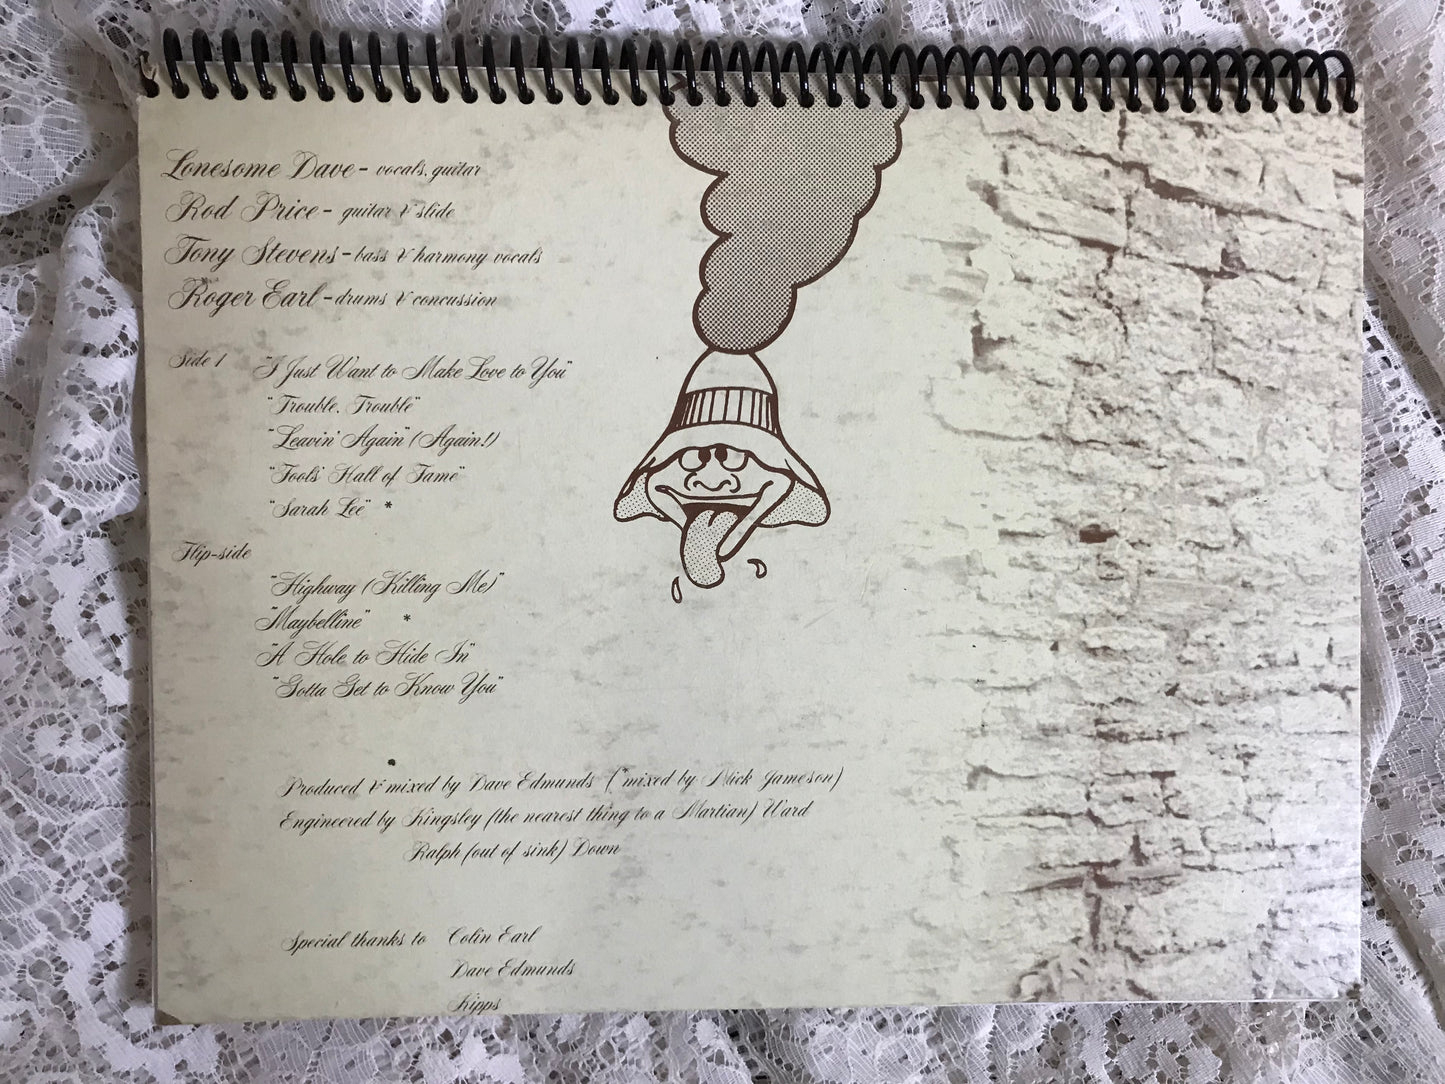 Lonesome Dave - vocals, guitar
Rod Price - guitar & slide
Tony Stevens - bass & harmony vocals
Roger Earl - drums & concussion
Side 1 "I Just Want to Make Love to You"
"Trouble, Trouble"
"Leavin' Again" (Again!)
"Fools' Hall of Fame"
"Sarah Lee" *
Flip-side
"Highway (Killing Me)"
"Maybelline" *
"A Hole to Hide In"
"Gotta Get to Know You"
Produced & mixed by Dave Edmunds (*mixed by Nick Jameson)
Engineered by Kingsley (the nearest thing to a Martian) Ward
Ralph (out of sink) Down
Special thanks to Colin Earl
Dave Edmunds
Kipps